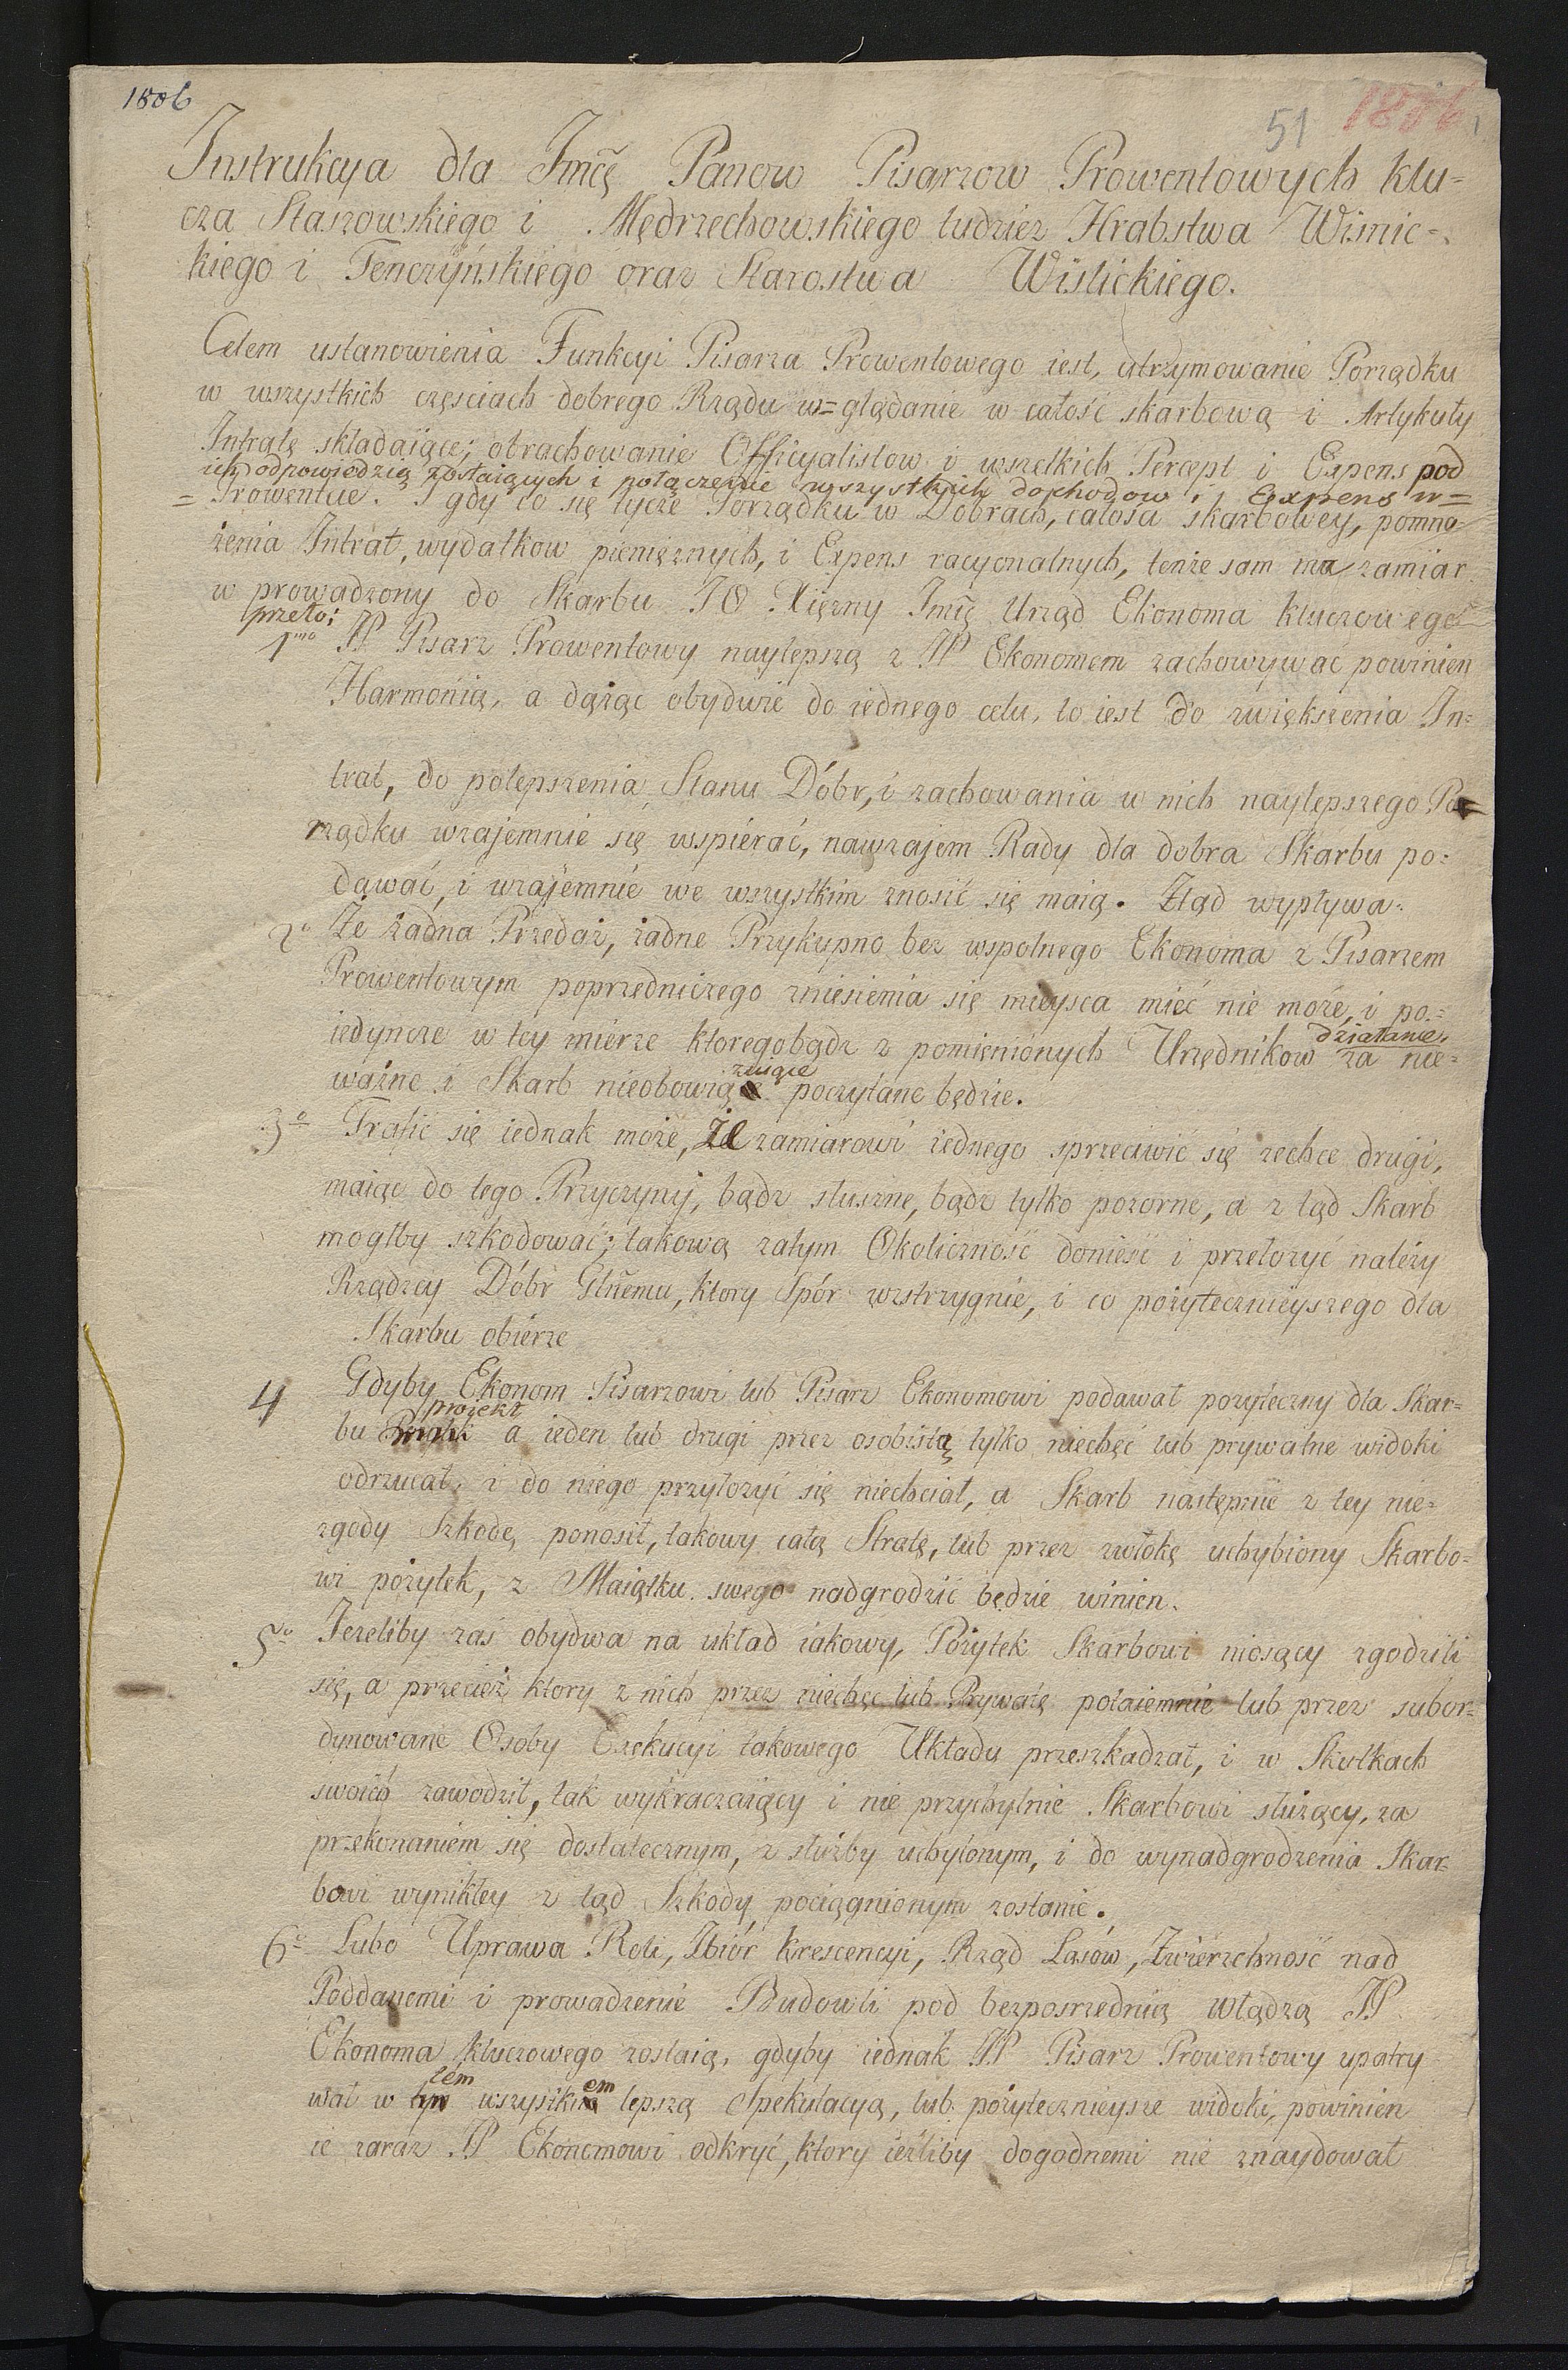 1806
51 1806
Instrukcya dla Jmcę Panow Pisarzow Prowentowych klu=
cza Staszowskiego i Mędrzechowskiego tudzież Hrabstwa Wiśnic=
kiego i Tenczyńskiego oraz Starostwa Wislickiego.
Celem ustanowienia Funkcyi Pisarza Prowentowego iest, utrzymowanie Porządku
w wszystkich częściach dobrego Rządu w=glądanie w całość skarbową i Artykuły
Intratę składaiące; obrachowanie Officyalistow i wszelkich Percept i Expens pod
ich odpowiedzią zostaiących i połączenie wszystkich dochodow i Expens w=
=Prowentue. I gdy co się tycze Porządku w Dobrach, całości skarbowey, pomno=
żenia Intrat, wydatkow pieniężnych, i Expens racyonalnych, tenże sam ma zamiar
w prowadzony do Skarbu JO Xiężny Jmcę Urząd Ekonoma kluczowego
przeto:
1mo JP Pisarz Prowentowy naylepszą z JP Ekonomem zachowywać powinien
Harmonią, a dążąc obydwie do iednego celu, to iest do zwiększenia In=
trat, do polepszenia Stanu Dóbr, i zachowania w nich naylepszego Po=
rządku wzajemnie się wspierać, nawzajem Rady dla dobra Skarbu po=
dawać, i wzajemnie we wszystkim znosić się maią. Ztąd wypływa=
2o Że żadna Przedaż, żadne Przykupno bez wspolnego Ekonoma z Pisarzem
Prowentowym poprzedniczego zniesienia się mieysca mieć nie może, i po=
iedyncze w tey mierze ktoregobądz z pomienionych Urzędnikow działanie, za nie=
ważne i Skarb nieobowiązuiące poczytane będzie.
3o Trafić się iednak może, Że zamiarowi iednego sprzeciwić się zechce drugi,
maiąc do tego Przyczyny, bądz słuszne, bądz tylko pozorne, a z tąd Skarb
mogłby szkodować; takową zatym Okoliczność donieść i przełożyć należy
Rządzcy Dóbr Głñemu, ktory Spór rozstrzygnie, i co pożytecznieyszego dla
Skarbu obierze
4 Gdyby Ekonom Pisarzowi lub Pisarz Ekonomowi podawał pożyteczny dla Skar=
bu projekt a ieden lub drugi przez osobistą tylko niechęc lub prywatne widoki
odrzucał, i do niego przyłożyć się niechciał, a Skarb następnie z tey nie=
zgody Szkodę ponosił, takowy całą Stratę, lub przez zwłokę uchybiony Skarbo=
wi pożytek, z Maiątku swego nadgrodzić będzie winien.
5to Jeżeliby zaś obydwa na układ iakowy, Pożytek Skarbowi niosący zgodzili
się, a przecież ktory z nich przez niechęc lub Prywatę potaiemnie lub przez subor=
dynowane Osoby Exekucyi takowego Układu przeszkadzał, i w Skutkach
swoich zawodził, tak wykraczaiący i nie przychylnie Skarbowi służący, za
przekonaniem się dostatecznym, z służby uchylonym, i do wynadgrodzenia Skar=
bowi wynikłey z tąd Szkody pociągnionym zostanie.
6o Lubo Uprawa Roli, Zbiór krescencyi, Rząd Lasów, Zwierzchność nad
Poddanemi i prowadzenie Budowli pod bezposrzednią władzą JP
Ekonoma kluczowego zostaią, gdyby iednak JP Pisarz Prowentowy upatry
wał w tem wszystkiem lepszą Spekulacyą, lub pożytecznieysze widoki, powinien
ie zaraz JP Ekonomowi odkryć, ktory ieżliby dogodnemi nie znaydował